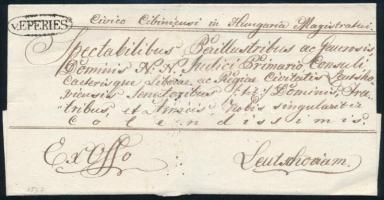 v. EPERIES
Civico Cibiniensi in Hungaria Magistratui.
Spectabilibus Perillustribus ac
Dominis N. N. Judici Primario Consuli
Caeterisque Liberae, ac Regiae Civitatis Leutsho-
viensis Senatoribus Dominis, Fra-
tribus, et Amicis Nobis singulariter
colendissimis.
Ex Offo
Leutschoviam.